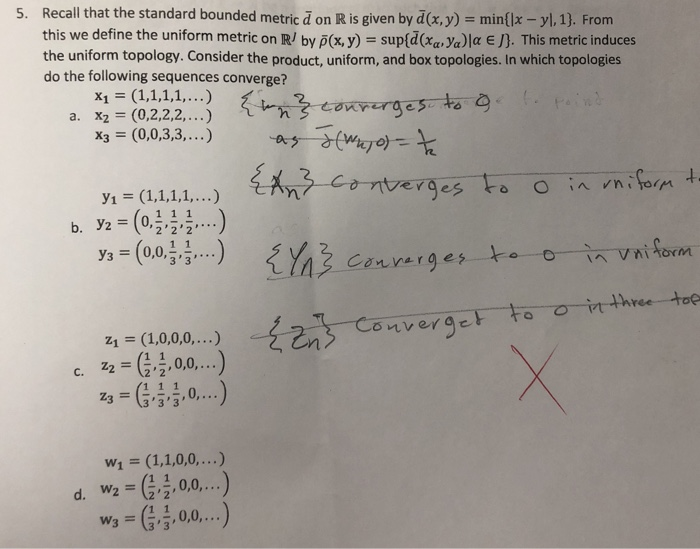 5. Recall that the standard bounded metric d̄ on ℝ is given by d̄(x, y) = min{|x − y|, 1}. From
this we define the uniform metric on ℝᴶ by ρ̄(x, y) = sup{d̄(xα, yα)|α ∈ J}. This metric induces
the uniform topology. Consider the product, uniform, and box topologies. In which topologies
do the following sequences converge?
x₁ = (1,1,1,1,...)
a. x₂ = (0,2,2,2,...)
x₃ = (0,0,3,3,...)
{wn} converges to 0
as ρ̄(wn,0) = 1/n
{xn} converges to 0 in uniform t
y₁ = (1,1,1,1,...)
b. y₂ = (0,1/2,1/2,1/2,...)
y₃ = (0,0,1/3,1/3,...)
{Yn} converges to 0 in uniform
z₁ = (1,0,0,0,...)
c. z₂ = (1/2,1/2,0,0,...)
z₃ = (1/3,1/3,1/3,0,...)
{Zn} converget to 0 in three top
w₁ = (1,1,0,0,...)
d. w₂ = (1/2,1/2,0,0,...)
w₃ = (1/3,1/3,0,0,...)